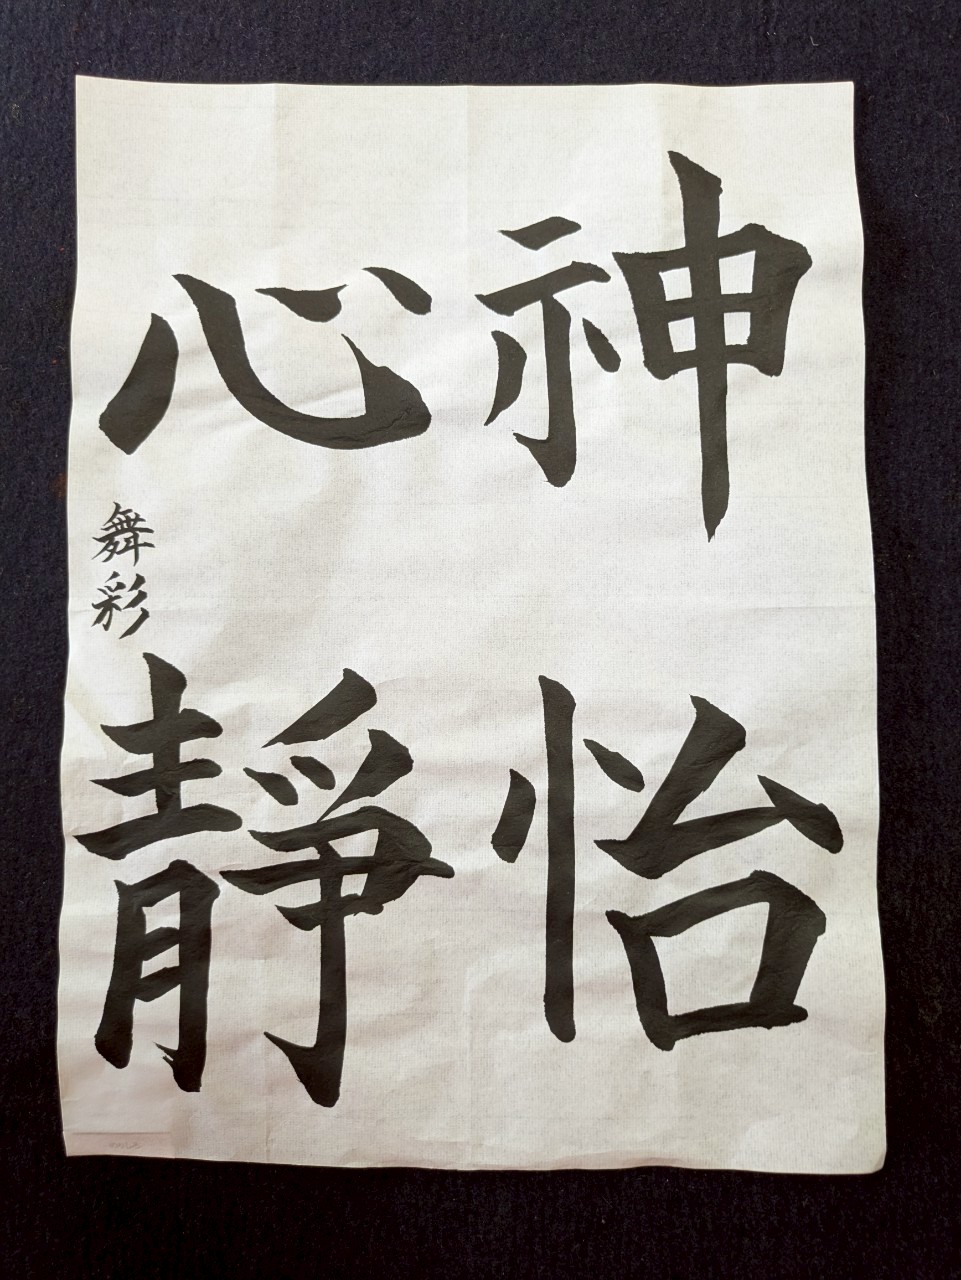 神怡
心靜
舞彩